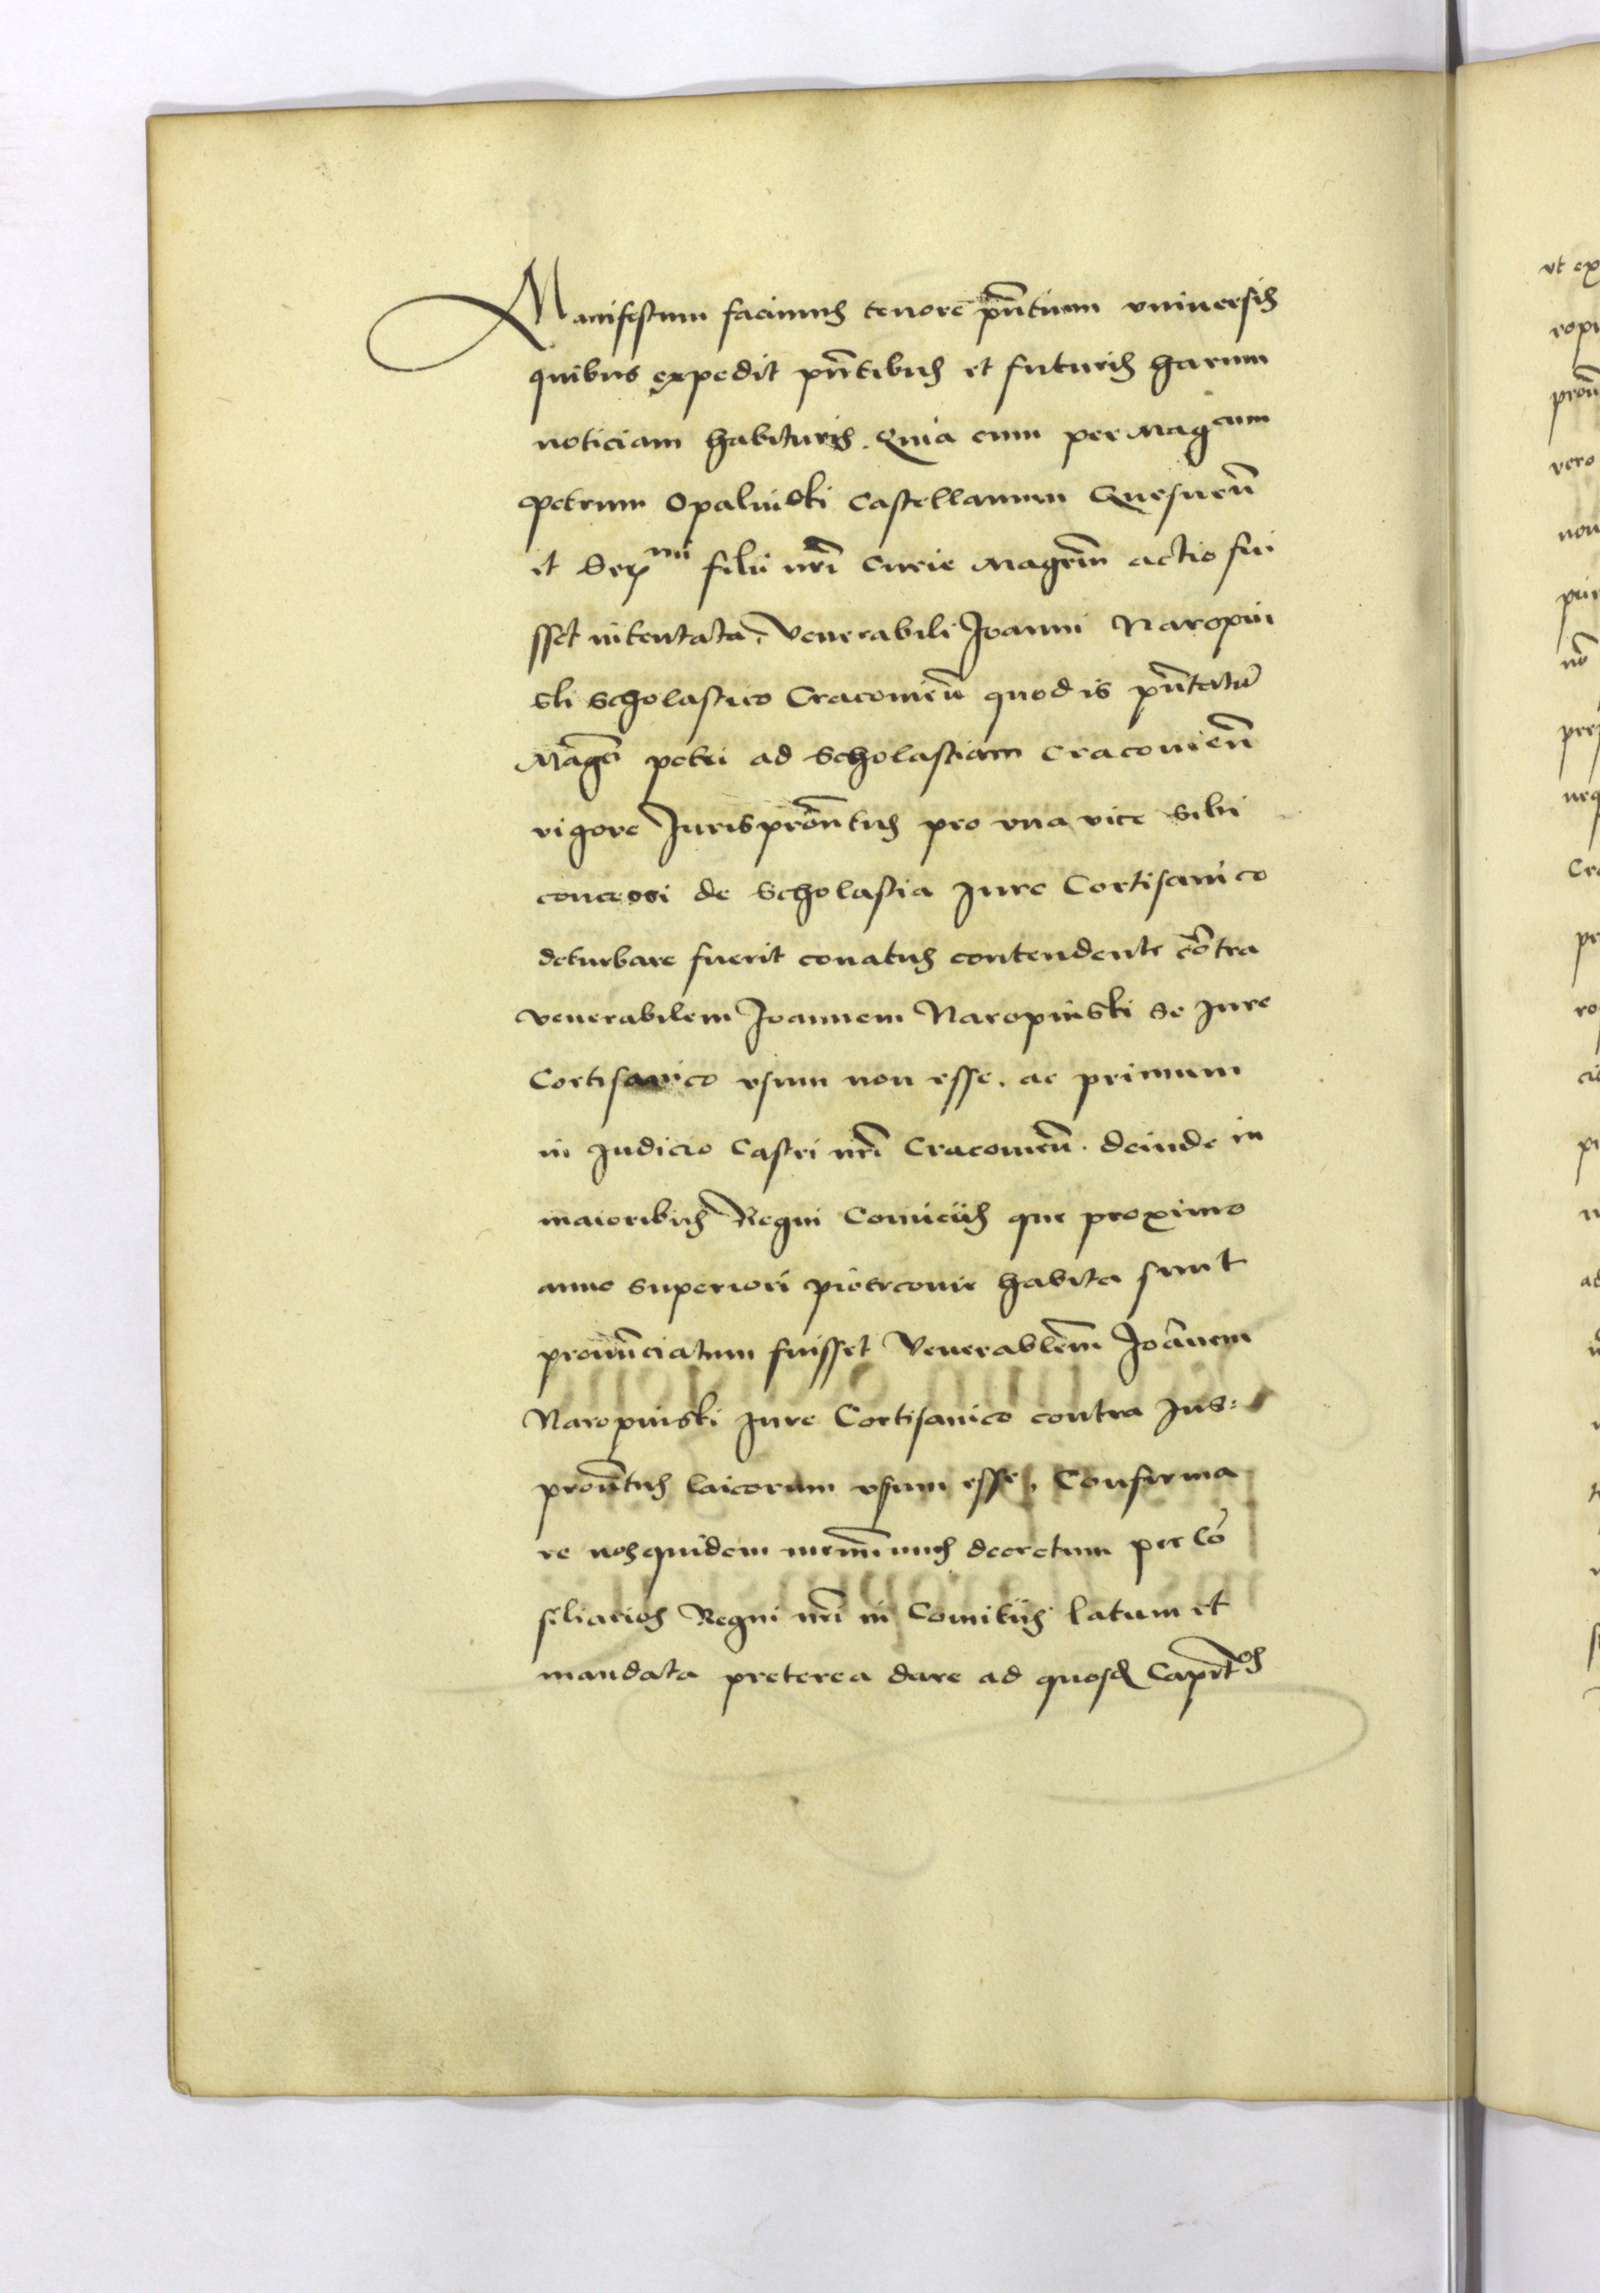 Manifestum facimus tenore pñtium vniuersis
quibus expedit pñtibus et futuris harum
noticiam habituris. Quia cum per Mag cum
Petrum Opalinski Castellanum Gnesneñ
et Ser mi filii nrĩ Curie Magrm̃ actio fui
sset intentata, Venerabili Joanni Naropin
ski Scholastico Cracouieñ quod is pñtatũ
Magci petri ad Scholastiam Cracouieñ
vigore Jurisproñtus pro vna vice sibi
concessi de Scholastia Jure Cortisanico
deturbare fuerit conatus contendente cõtra
Venerabilem Joannem Naropinski se Jure
Cortisanico vsum non esse. ac primum
in Judicio Castri nrĩ Cracouieñ. deinde in
maioribus Regni Comiciis que proximo
anno superiori piotrcouie habita sunt
pronũciatum fuisset Venerablem̃ Joãnem
Naropinski Jure Cortisanico contra Jus:
proñtus laicorum vsum esse, Confirma
re nos quidem memĩmus decretum per Cõ
siliarios Regni nrĩ in Comitiis latum et
mandata preterea dare ad quosd Capit os
vt ex
ropi
proñ
vero
non